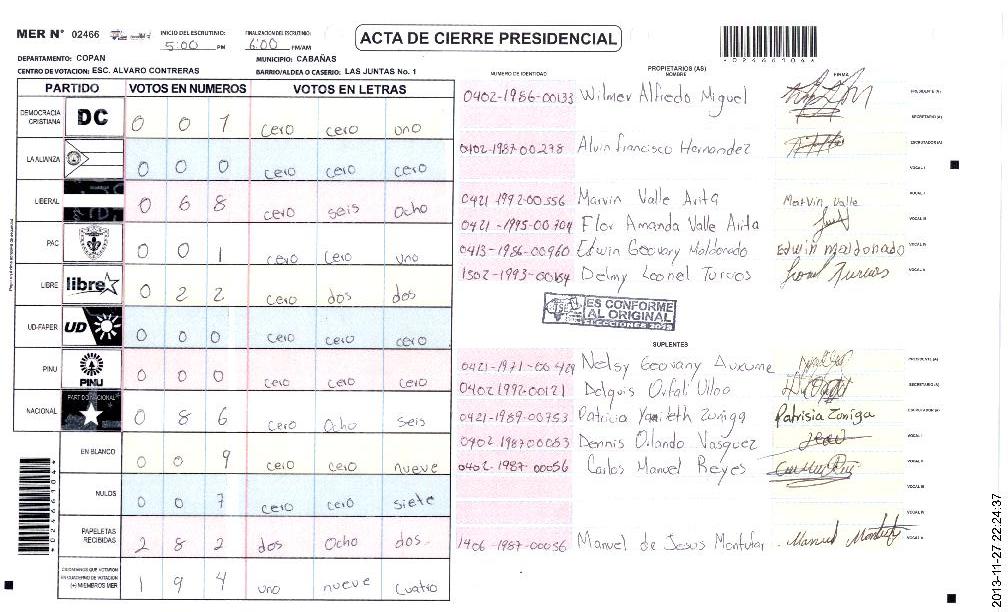 MER N° 02466
INICIO DEL ESCRUTINIO: 5:00 PM
FINALIZACION DEL ESCRUTINIO: 6:00 PM/AM
ACTA DE CIERRE PRESIDENCIAL
DEPARTAMENTO: COPAN
MUNICIPIO: CABAÑAS
CENTRO DE VOTACION: ESC. ALVARO CONTRERAS
BARRIO/ALDEA O CASERIO: LAS JUNTAS No. 1
PARTIDO VOTOS EN NUMEROS VOTOS EN LETRAS
DEMOCRACIA CRISTIANA DC 0 0 1 cero cero uno
LA ALIANZA 0 0 0 cero cero cero
LIBERAL 0 6 8 cero seis Ocho
PAC 0 0 1 cero cero uno
LIBRE libre 0 2 2 cero dos dos
UD-FAPER UD 0 0 0 cero cero cero
PINU PINU 0 0 0 cero cero cero
NACIONAL PARTIDO NACIONAL 0 8 6 cero Ocho seis
EN BLANCO 0 0 9 cero cero nueve
NULOS 0 0 7 cero cero siete
PAPELETAS RECIBIDAS 2 8 2 dos Ocho dos
CIUDADANOS QUE VOTARON
EN CUADERNO DE VOTACION
(+) MIEMBROS MER 1 9 4 uno nueve cuatro
PROPIETARIOS (AS)
NUMERO DE IDENTIDAD NOMBRE FIRMA
0402-1986-00133 Wilmer Alfredo Miguel PRESIDENTE (A)
SECRETARIO (A)
0402-1987-00278 Alvin Francisco Hernandez ESCRUTADOR (A)
VOCAL I
0421 1992-00556 Marvin Valle Arita Marvin Valle
0421-1995-00704 Flor Amanda Valle Arita
0413-1986-00960 Edwin Geovany Maldonado Edwin Maldonado
1502-1993-00154 Delmy Leonel Turcios
TSE ES CONFORME
AL ORIGINAL
ELECCIONES
SUPLENTES
0421-1971-00429 Nelsy Geovany PRESIDENTE (A)
0402 1992-00121 SECRETARIO (A)
0421-1989-00753 Patricia Zuniga Patrisia Zoniga ESCRUTADOR (A)
0402 1987 00053 Dennis Orlando Vasquez VOCAL I
0402-1987-00056 Carlos Manuel Reyes
1406-1987-00056 Manuel de Jesus Montufar
2013-11-27 22:24:37